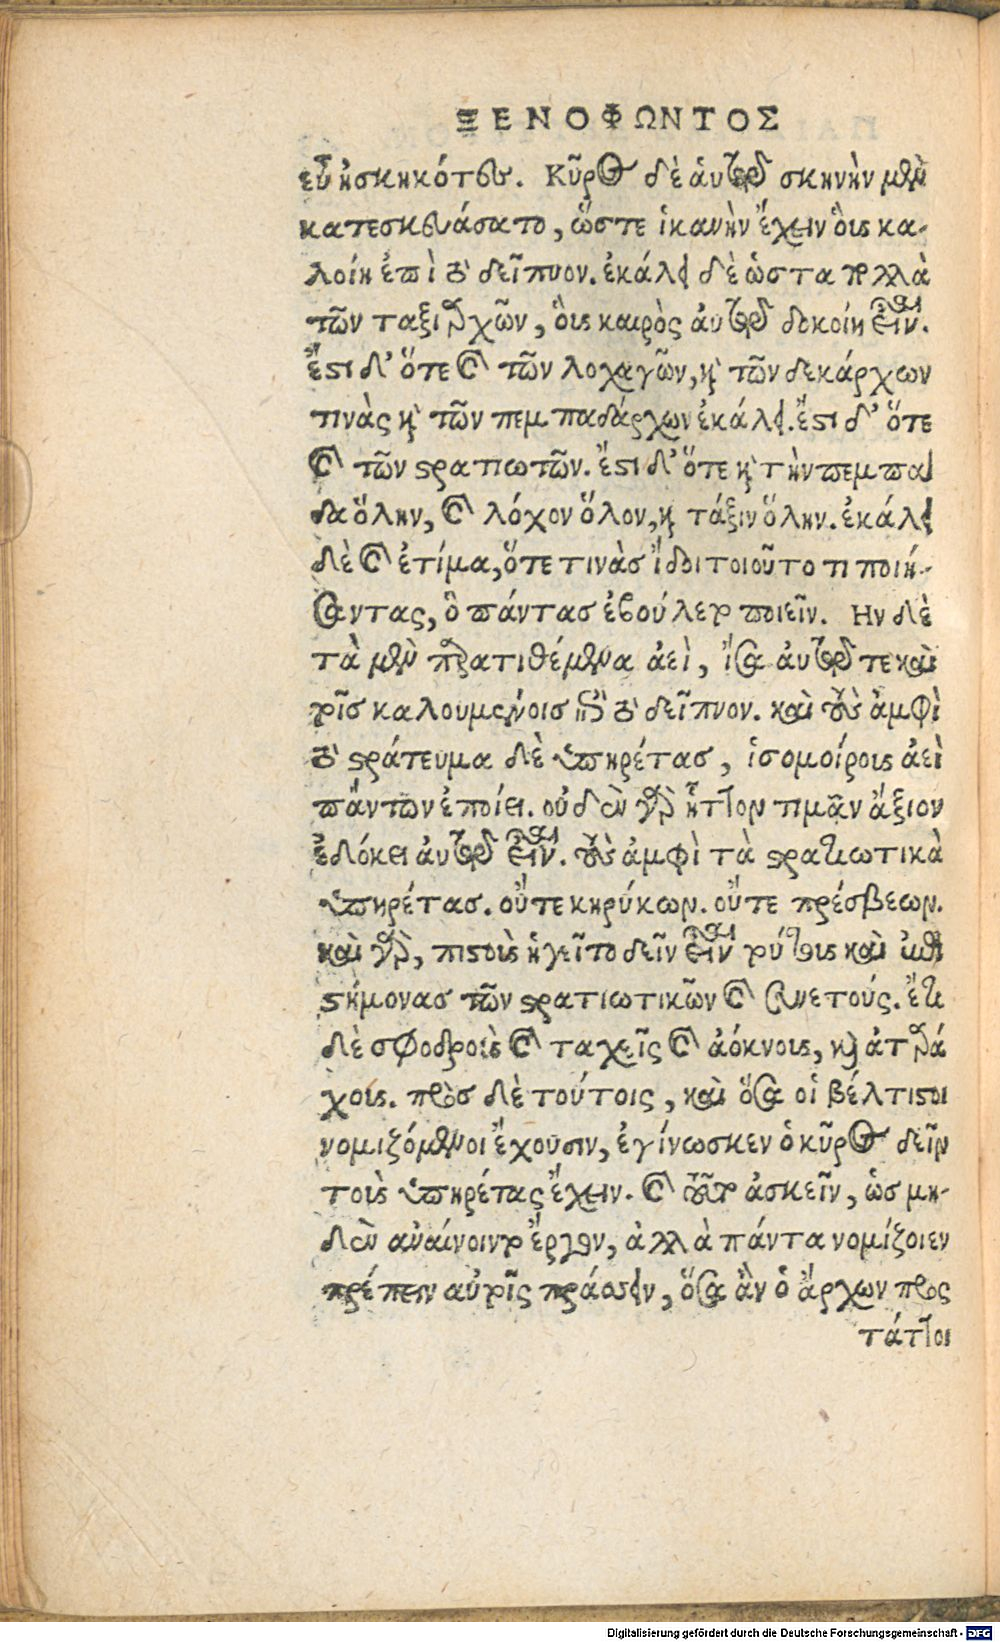 ΞΕΝΟΦΩΝΤΟΣ
εὖ ἠσκηκότων. Κῦρος δὲ ἁυτῷ σκηνὴν μὲν
κατεσκευάσατο, ὥστε ἱκανὴν ἔχειν ὃις κα-
λοίη ἐπὶ τὸ δεῖπνον. ἐκάλει δὲ ὡς τὰ πολλὰ
τῶν ταξιάρχων, ὃις καιρὸς ἀυτῷ δοκοίη εἶναι.
ἔστι δ' ὅτε καὶ τῶν λοχαγῶν, καὶ τῶν δεκάρχων
τινὰς καὶ τῶν πεμπαδάρχων ἐκάλει. ἔστι δ' ὅτε
καὶ τῶν στρατιωτῶν. ἔστι δ' ὅτε καὶ τὴν πεμπά
δα ὅλην, καὶ λόχον ὅλον, καὶ τάξιν ὅλην. ἐκάλει
δὲ καὶ ἐτίμα, ὅτε τινὰσ ἴδοι τοιοῦτο τι ποιή-
σαντας, ὃ πάντασ ἐβούλετο ποιεῖν. Ην δὲ
τὰ μὲν παρατιθέμενα ἀεὶ, ἴσα ἀυτῷ τε καὶ
τοῖσ καλουμένοισ ἐπὶ τὸ δεῖπνον. καὶ τοὺς ἀμφὶ
τὸ στράτευμα δὲ ὑπηρέτασ, ἰσομοίρους ἀεὶ
πάντων ἐποίει. οὐδὲν γὰρ ἧττον τιμᾶν ἄξιον
ἐδόκει ἀυτῷ εἶναι. τοὺς ἀμφὶ τὰ στρατιωτικὰ
ὑπηρέτασ. οὔτε κηρύκων. οὔτε πρέσβεων.
καὶ γὰρ, πιστοὺς ἡγεῖτο δεῖν εἶναι τούτους καὶ ἐπι
στήμονασ τῶν στρατιωτικῶν καὶ συνετούς. ἔτι
δὲ σφοδροὺς καὶ ταχεῖς καὶ ἀόκνους, καὶ ἀταρά
χους. πρὸσ δὲ τούτοις, καὶ ὅσα οἱ βέλτιστοι
νομιζόμενοι ἔχουσιν, ἐγίνωσκεν ὁ κῦρος δεῖν
τοὺς ὑπηρέτας ἔχειν. καὶ τοῦτο ἀσκεῖν, ὡσ μη-
δὲν αναίνοιντο ἔργον, ἀλλὰ πάντα νομίζοιεν
πρέπειν αὐτοῖς πράσσειν, ὅσα ἂν ὁ ἄρχων προς
τάττοι
Digitalisierung gefördert durch die Deutsche Forschungsgemeinschaft - DFG